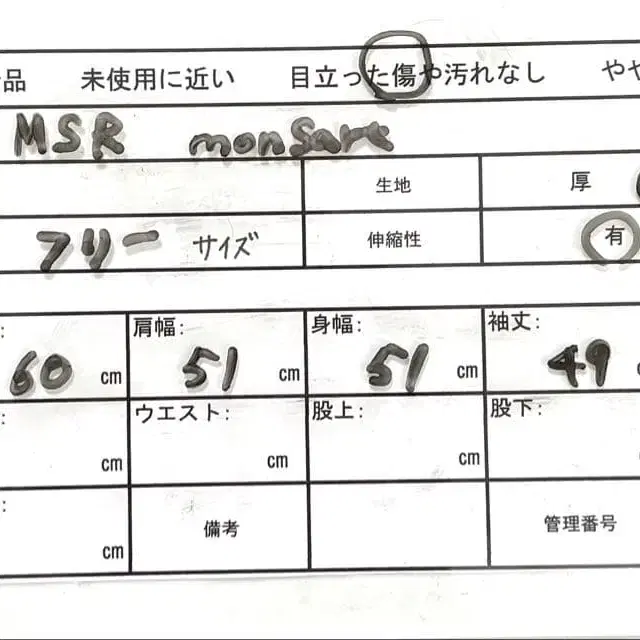 品 未使用に近い 目立った傷や汚れなし やや
MSR monSare
生地 厚
フリー サイズ 伸縮性 有
: 肩幅: 身幅: 袖丈:
60 cm 51 cm 51 cm 49
: ウエスト: 股上: 股下:
cm cm cm
:
cm 備考 管理番号